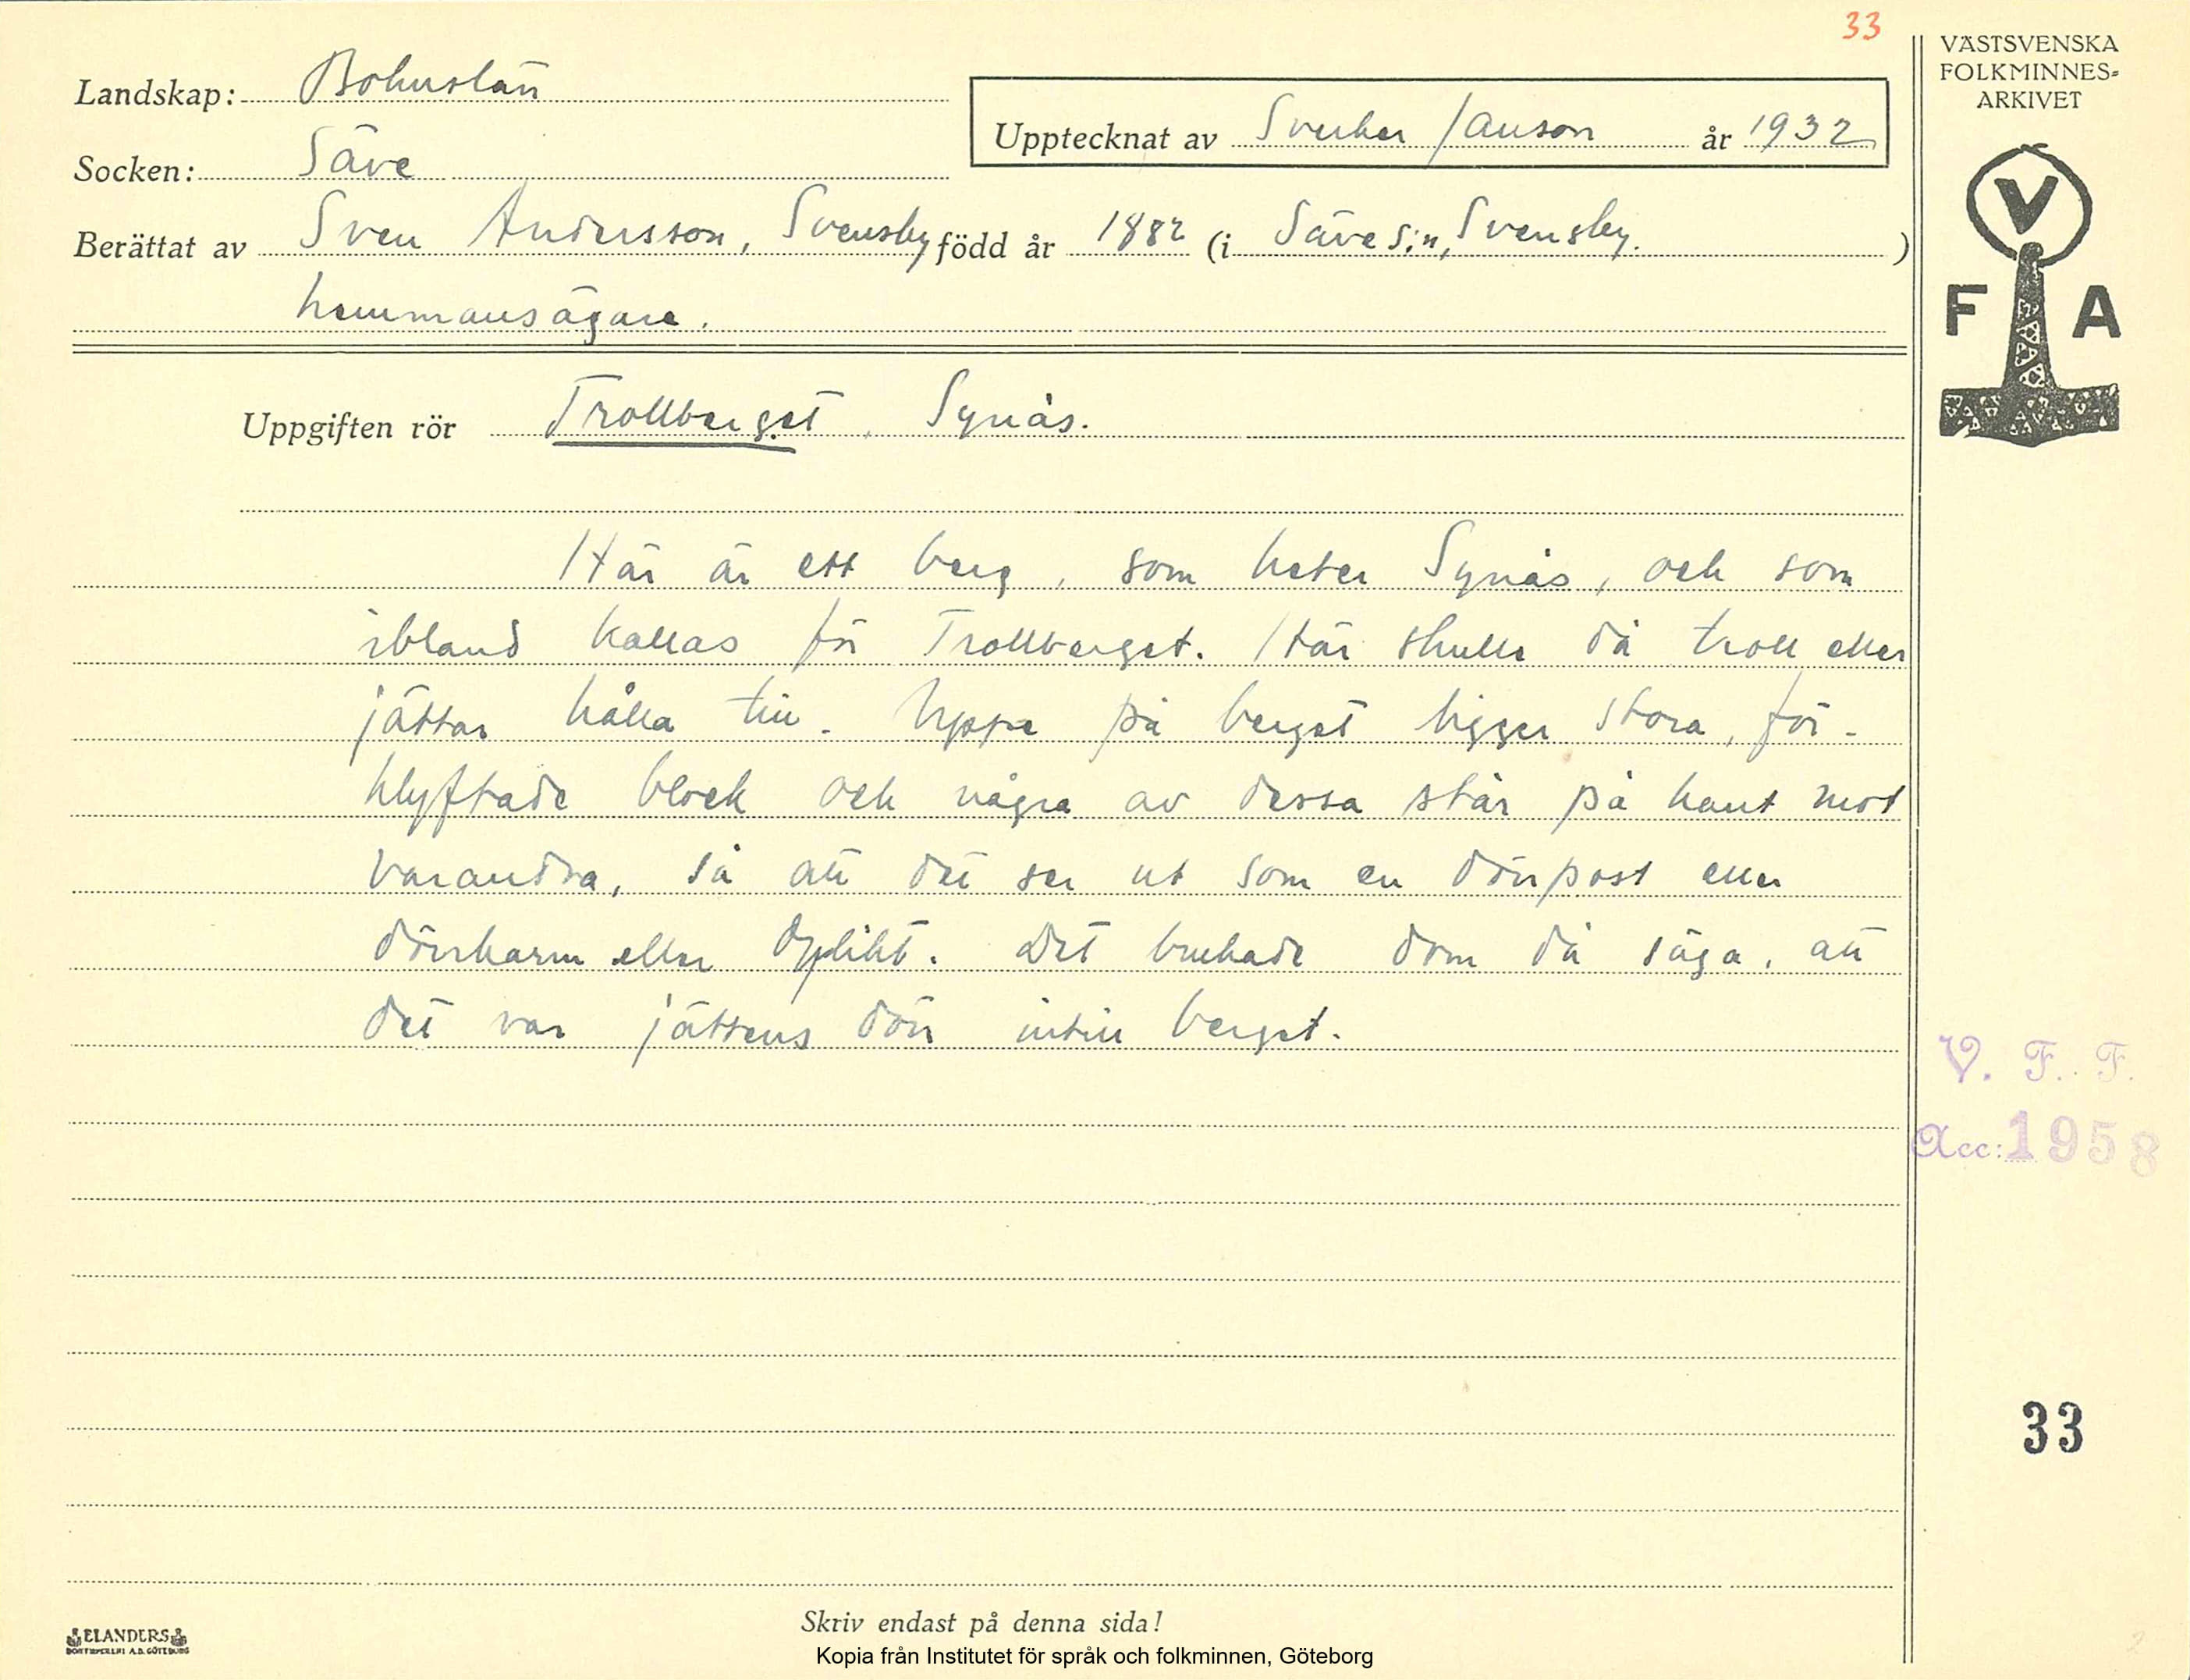 33
VÄSTSVENSKA
FOLKMINNES=
ARKIVET
V
F A
Landskap: Bohuslän
Upptecknat av Sverker Janson år 1932
Socken: Säve
Berättat av Sven Andersson, Svensby född år 1882 (i Säve s:n, Svensby. )
hemmansägare.
Uppgiften rör Trollberget, Synås.
Här är ett berg, som heter Synås, och som
ibland kallas för Trollberget. Här skulle då troll eller
jättar hålla till. Uppe på berget ligger stora, för-
klyftade block och några av dessa står på kant mot
varandra, så att det ser ut som en dörrpost eller
dörrkarm eller dylikt. Det brukade dom då säga, att
det var jättens dörr intill berget.
V. F. F.
Acc: 1958
33
ELANDERS
BOKTRYCKERI A.B. GÖTEBORG
Skriv endast på denna sida!
Kopia från Institutet för språk och folkminnen, Göteborg